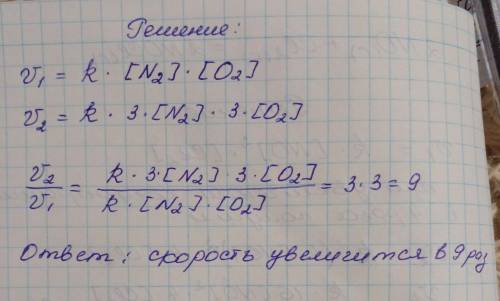 Решение:
v₁ = k · [N₂] · [O₂]
v₂ = k · 3 · [N₂] · 3 · [O₂]
v₂/v₁ = k · 3 · [N₂] · 3 · [O₂] / k · [N₂] · [O₂] = 3 · 3 = 9
Ответ: скорость увеличится в 9 раз